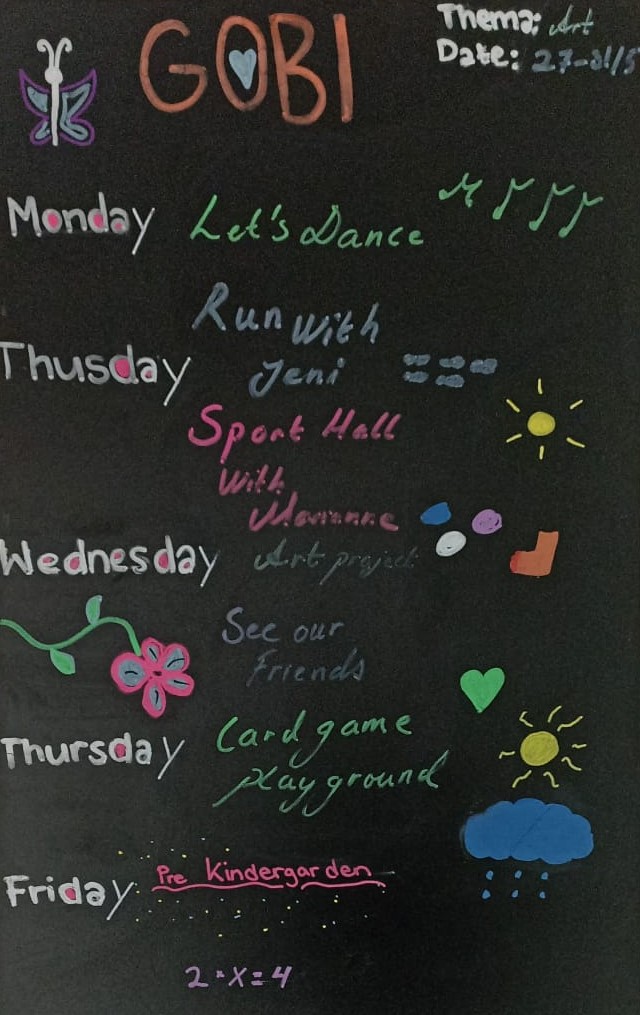 GOBI
Thema: Art
Date: 27-31/5
Monday Let's Dance
Run with
Thusday Jeni
Sport Hall
With
Marianne
Wednesday Art project
See our
Friends
Thursday Card game
playground
Friday Pre Kindergarden
2*X=4